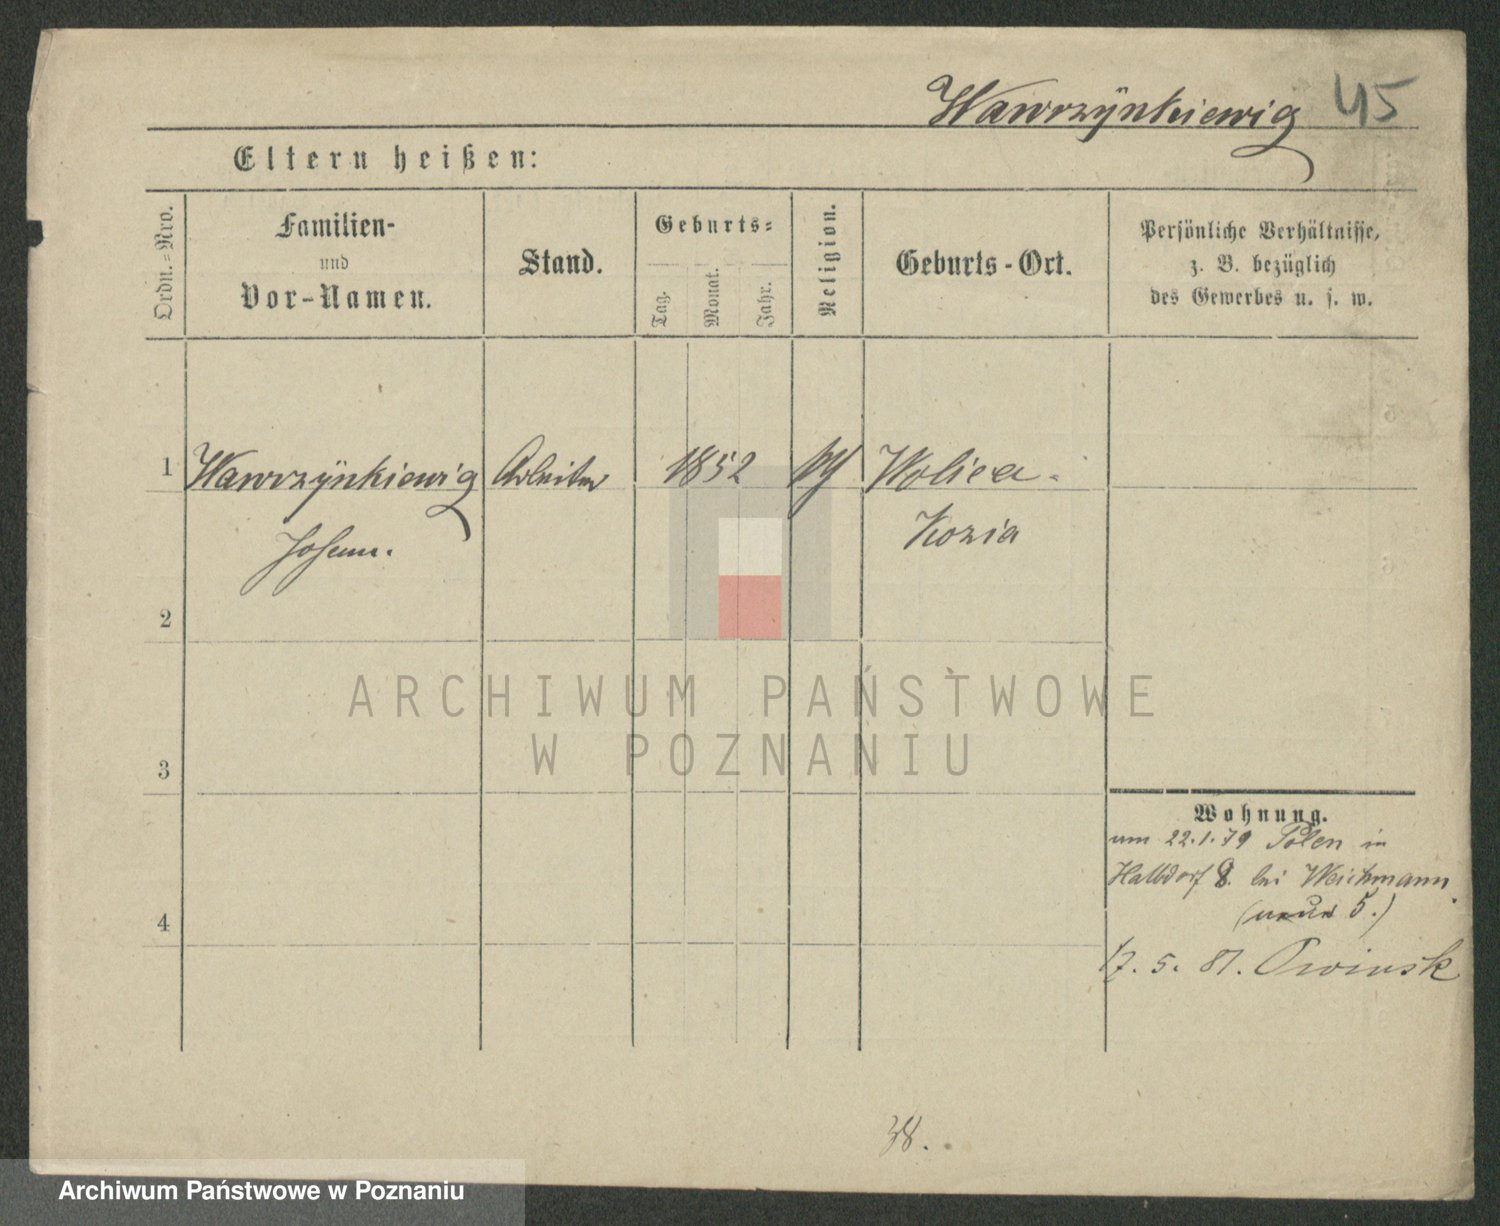 Wawrzÿnkiewicz 45
Eltern heißen:
Ordn.-Nro.
Familien-
und
Vor-Namen.
Stand.
Geburts-
Tag.
Monat.
Jahr.
Religion.
Geburts-Ort.
Persönliche Verhältnisse,
z. B. bezüglich
des Gewerbes u. s. w.
1 Wawrzÿnkiewicz Arbeiter 1852 Wolica-
Johann. Kozia
2
3
4
ARCHIWUM PAŃSTWOWE
W POZNANIU
Wohnung.
um 22.1.79 Polen in
Halbdorf 8. bei Weichmann.
5.)
17. 5. 81. Owinsk
38.
Archiwum Państwowe w Poznaniu